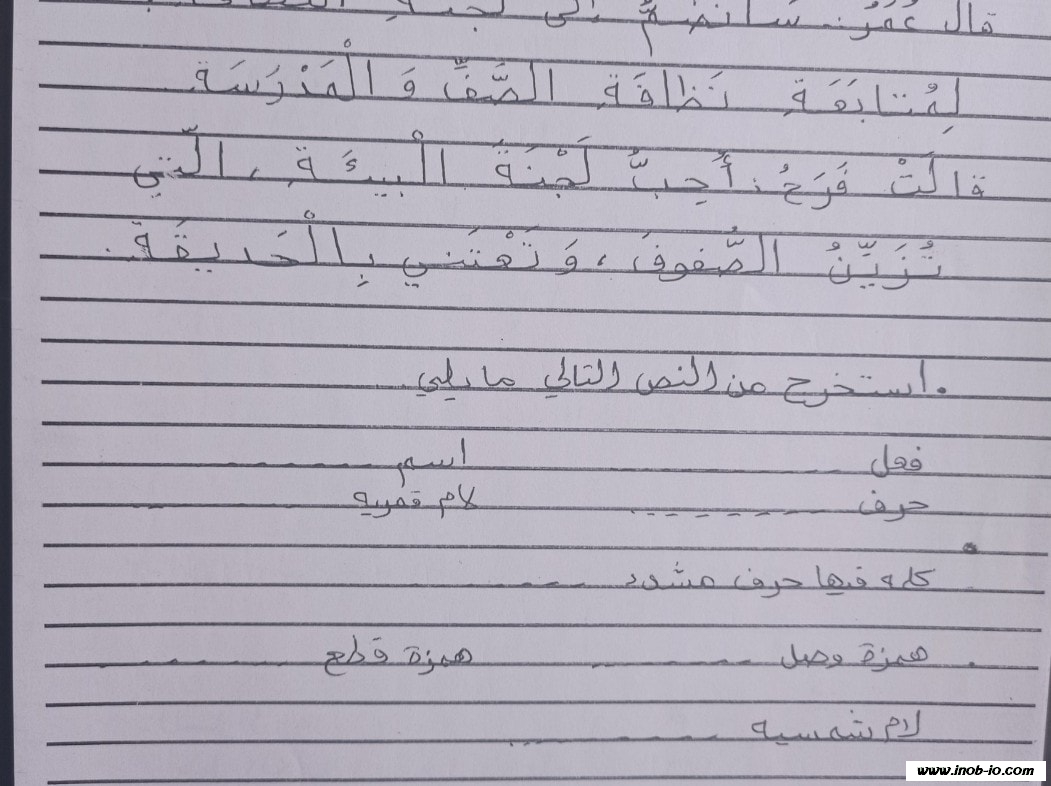 قال عُمَرُ: سَأَنْضَمُّ إلى لَجْنَةِ
لِمُتابَعَةِ نَظافَةِ الصَّفِّ وَ الْمَدْرَسَةِ
قالَتْ فَرَحُ: أُحِبُّ لَجْنَةَ الْبيءَةِ، الَّتي
تُزَيِّنُ الصُّفوفَ، وَتَعْتَني بِالْحَديقَةِ.
. استخرج من النص التالي ما يلي
فعل ---------- اسم ----------
حرف ---------- لام قمريه ----------
كلمه فيها حرف مشدد ----------
. همزة وصل ---------- همزة قطع ----------
لام شمسيه ----------
www.inob-io.com